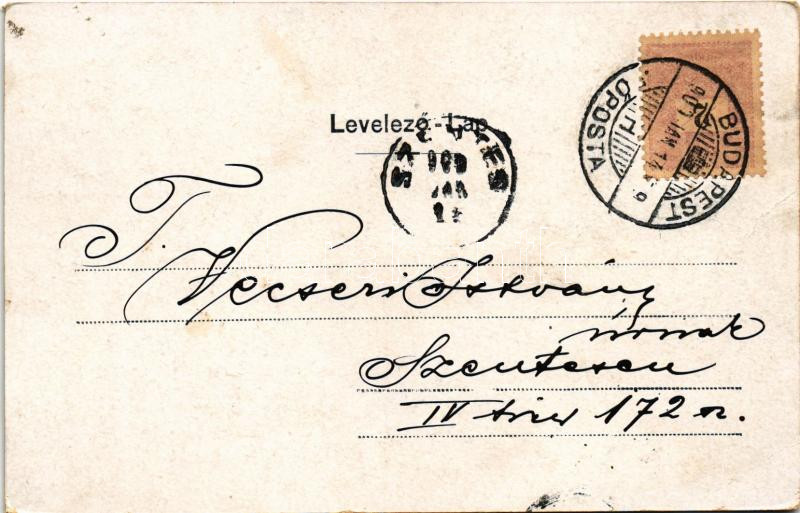 Levelező-Lap
BUDAPEST
FŐPOSTA
901 JAN 14
SZENTES
JAN
T.
Vecseri Istvány
úrnak
Szentesen
IV 172 sz.